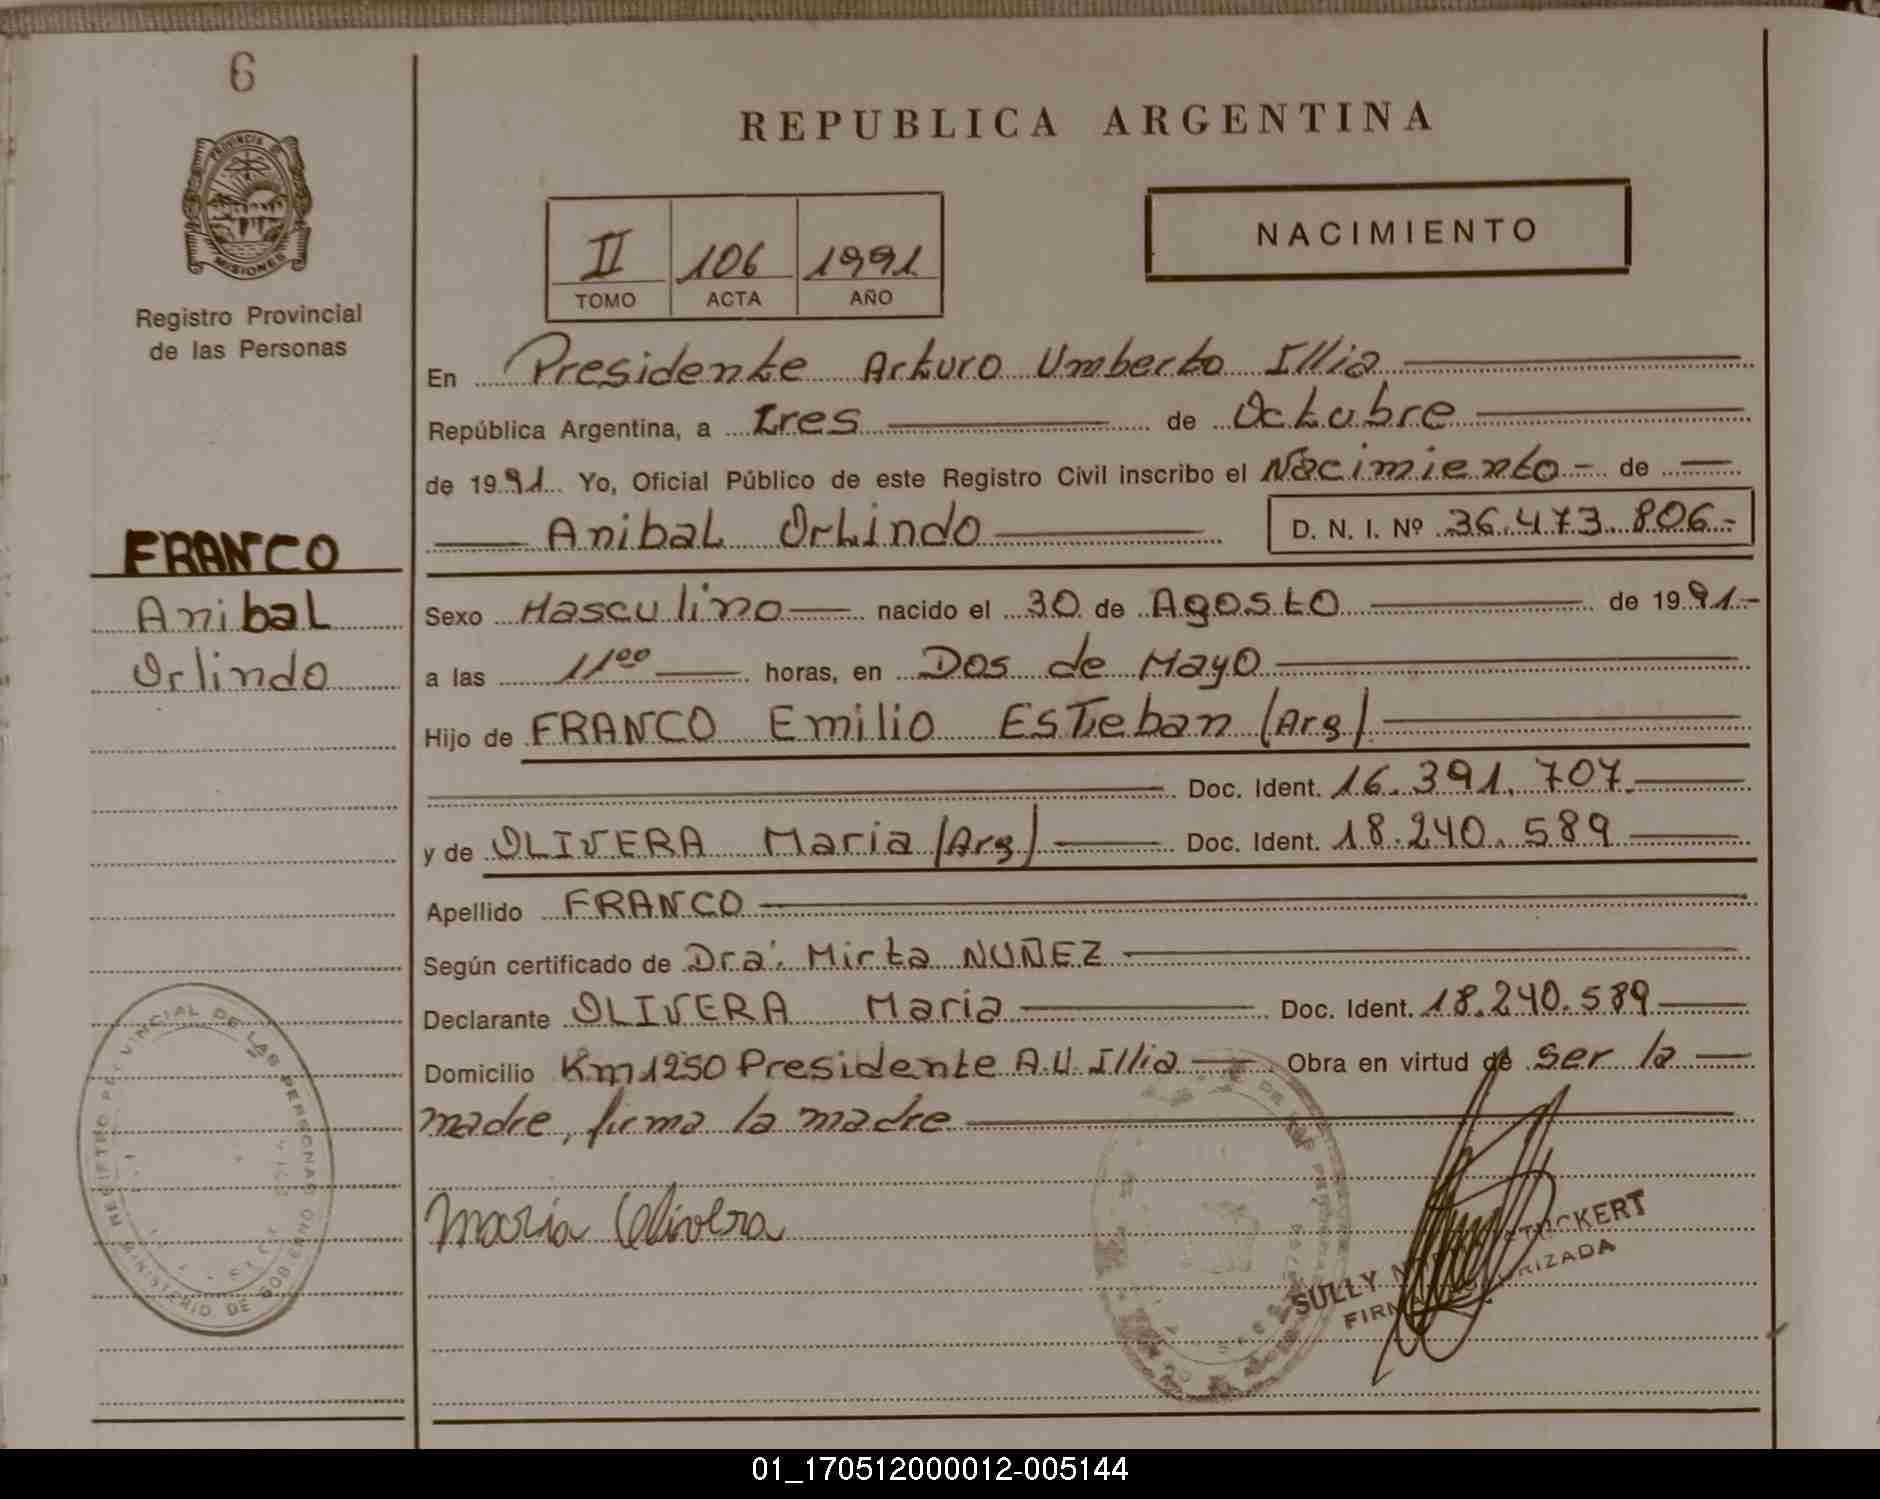 6
PROVINCIA D
MISIONES
Registro Provincial
de las Personas
FRANCO
Anibal
Orlindo
REPUBLICA ARGENTINA
II 106 1991
TOMO ACTA AÑO
NACIMIENTO
En Presidente Arturo Umberto Illia
República Argentina, a tres de Octubre
de 1991 Yo, Oficial Público de este Registro Civil inscribo el Nacimiento - de
Anibal Orlindo D. N. I. Nº 36.473.806.-
Sexo Masculino nacido el 30 de Agosto de 1991.-
a las 11 00 horas, en Dos de Mayo
Hijo de FRANCO Emilio Esteban (Arg)
Doc. Ident. 16.391.707.
y de OLIVERA Maria (Arg) Doc. Ident. 18.240.589
Apellido FRANCO
Según certificado de Dra: Mirta NUÑEZ
Declarante OLIVERA Maria Doc. Ident. 18.240.589
Domicilio Km1250 Presidente A.U. Illia Obra en virtud de ser la
madre, firma la madre
Maria Olivera
REGISTRO PROVINCIAL DE LAS PERSONAS
MINISTERIO DE GOBIERNO
DE LAS PERSONAS
SULLY
FIRMA AUTORIZADA
01_170512000012-005144